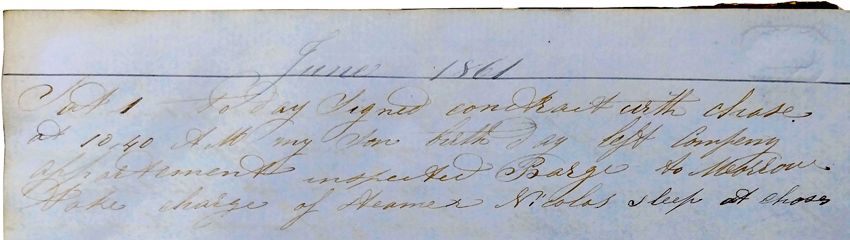 June 1861
Sat 1 - To day Signed contrait with chase
at 10.40 AM my Son birth day left Compeny
appartement inspected Barge to Morrow
Take charge of Steamer Nicolas sleep at chases